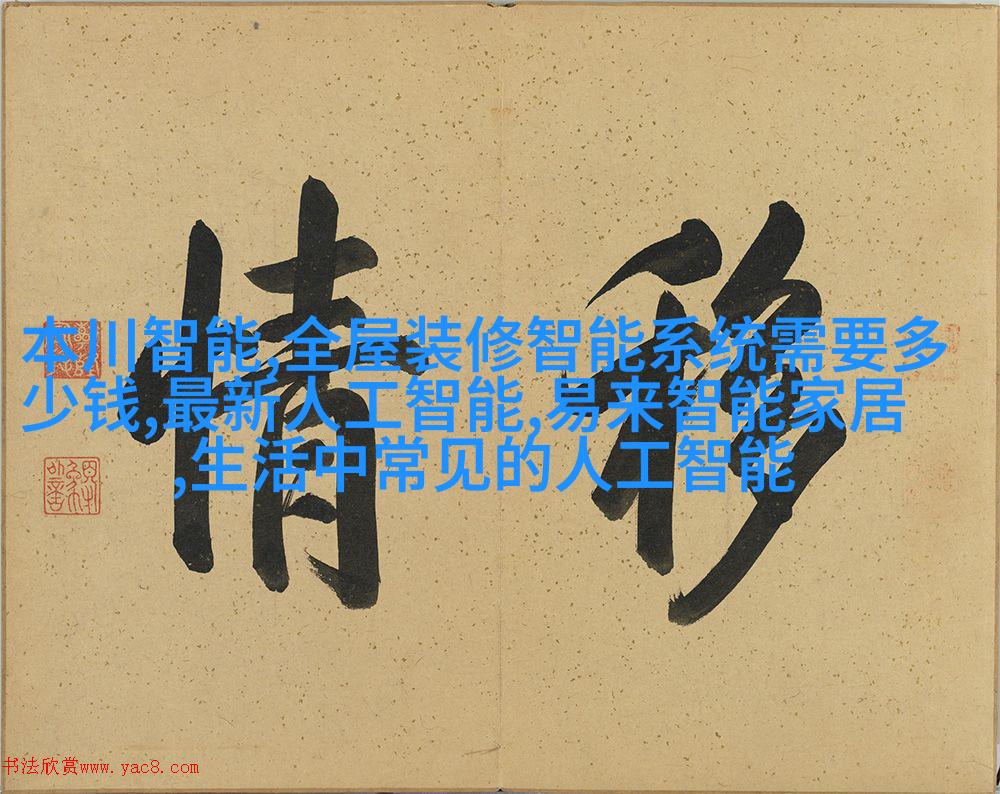 移情
本川智能,全屋装修智能系统需要多
少钱,最新人工智能,易来智能家居
,生活中常见的人工智能
书法欣赏www.yac8.com